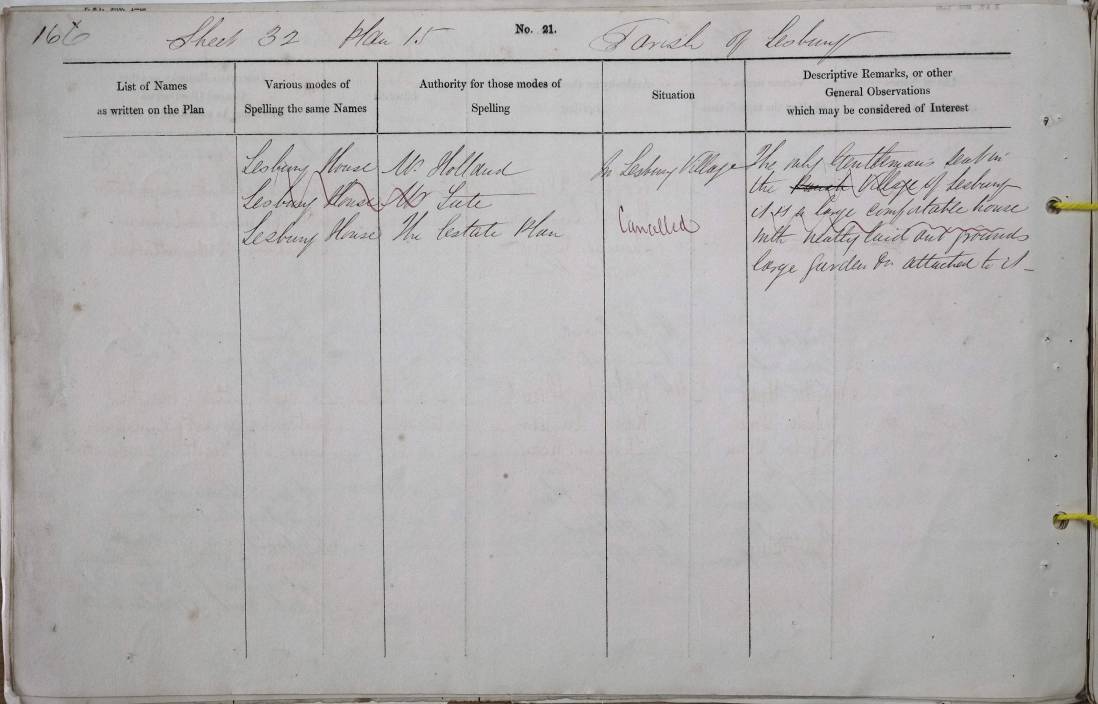 166
Sheet 32 Plan 15 No. 21. Parish of Lesbury
List of Names
as written on the Plan
Various modes of
Spelling the same Names
Authority for those modes of
Spelling
Situation
Descriptive Remarks, or other
General Observations
which may be considered of Interest
Lesbury House Mr. Holland In Lesbury Village The only Gentlemans Seat in
Lesbury House Mr the Parish Village of Lesbury
Lesbury House The Estate Plan Cancelled it is a large comfortable house
with neatly laid out grounds
large garden &c attached to it